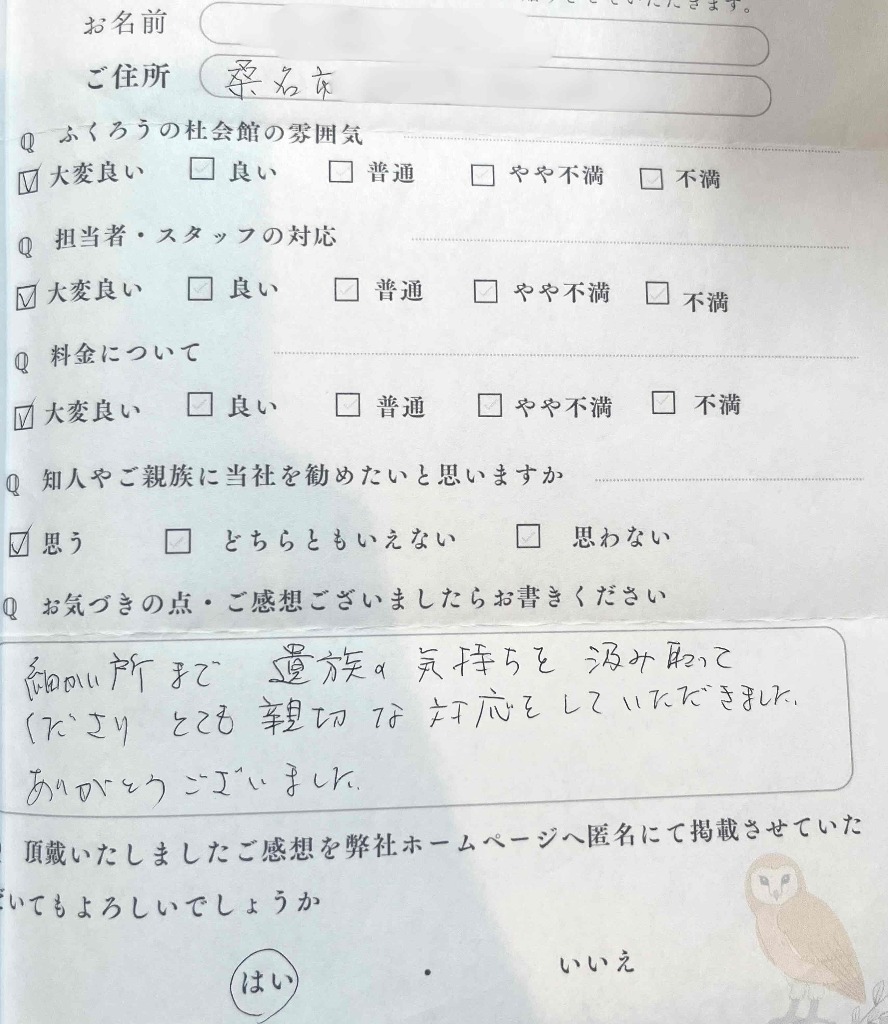 いただきます。
お名前
ご住所 桑名市
Q ふくろうの杜会館の雰囲気
大変良い 良い 普通 やや不満 不満
Q 担当者・スタッフの対応
大変良い 良い 普通 やや不満 不満
Q 料金について
大変良い 良い 普通 やや不満 不満
Q 知人やご親族に当社を勧めたいと思いますか
思う どちらともいえない 思わない
Q お気づきの点・ご感想ございましたらお書きください
細かい所まで 遺族の気持ちを 汲み取って
くださり とても 親切な 対応をしていただきました。
ありがとうございました。
頂戴いたしましたご感想を弊社ホームページへ匿名にて掲載させていた
だいてもよろしいでしょうか
はい ・ いいえ